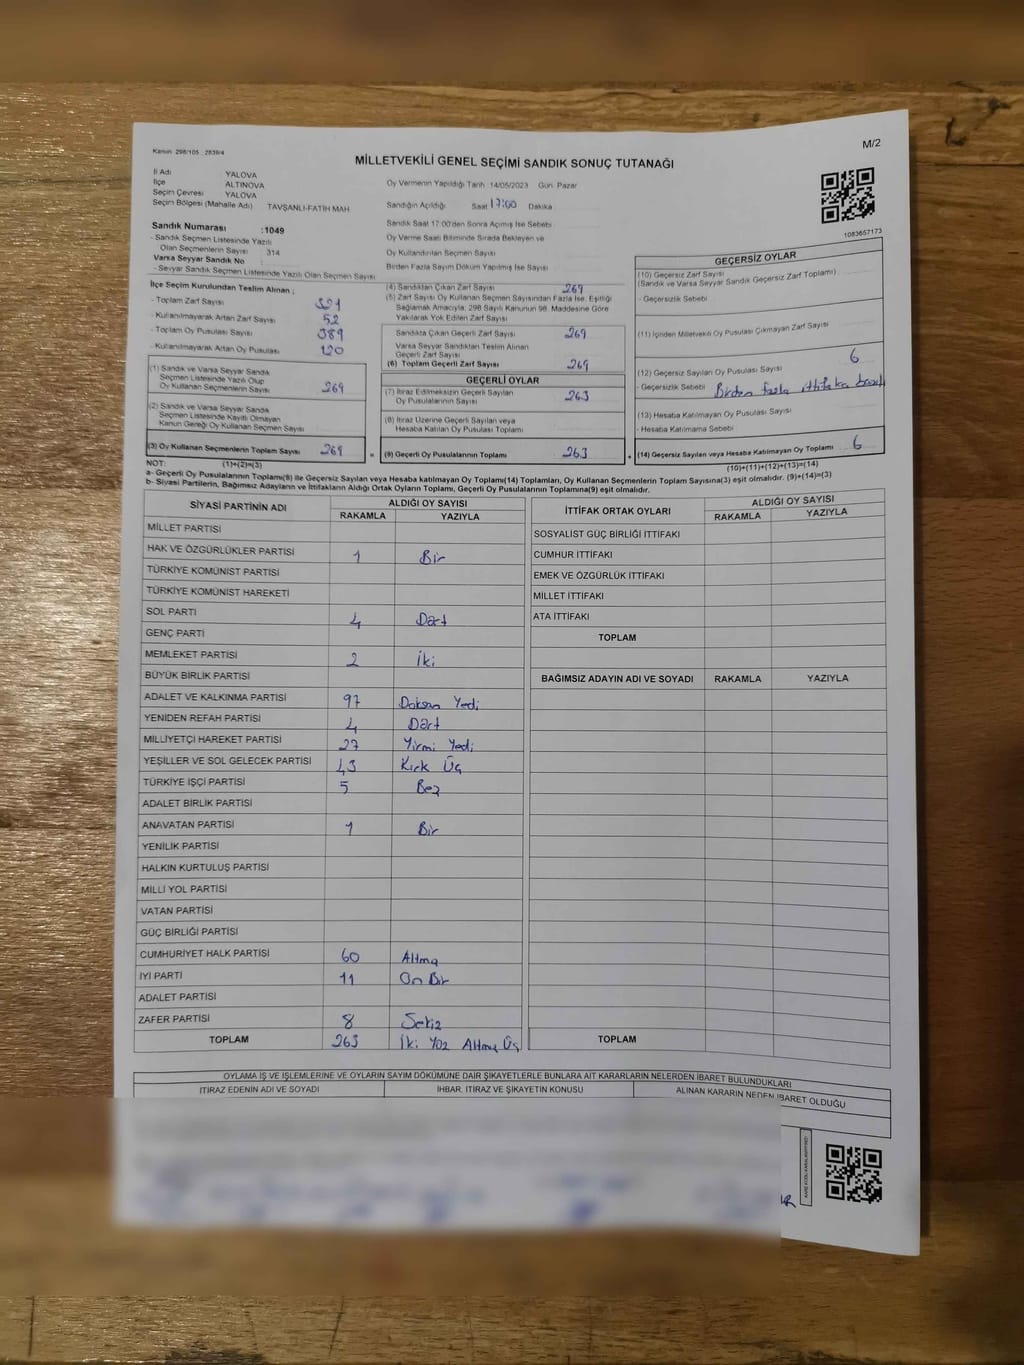 M/2
Kanun 298/105 2839/4
MİLLETVEKİLİ GENEL SEÇİMİ SANDIK SONUÇ TUTANAĞI
İl Adı YALOVA
İlçe ALTINOVA
Seçim Çevresi YALOVA
Seçim Bölgesi (Mahalle Adı) TAVŞANLI-FATİH MAH.
Oy Vermenin Yapıldığı Tarih :14/05/2023 Gün: Pazar
Sandığın Açıldığı Saat 17:00 Dakika
Sandık Numarası :1049
- Sandık Seçmen Listesinde Yazılı
Olan Seçmenlerin Sayısı : 314
Varsa Seyyar Sandık No :
- Seyyar Sandık Seçmen Listesinde Yazılı Olan Seçmen Sayısı
Sandık Saat 17:00'den Sonra Açılmış İse Sebebi
Oy Verme Saati Bitiminde Sırada Bekleyen ve
Oy Kullandırılan Seçmen Sayısı
Birden Fazla Sayım Döküm Yapılmış İse Sayısı
1083657173
İlçe Seçim Kurulundan Teslim Alınan ;
- Toplam Zarf Sayısı
- Kullanılmayarak Artan Zarf Sayısı 52
- Toplam Oy Pusulası Sayısı 389
- Kullanılmayarak Artan Oy Pusulası 120
(1) Sandık ve Varsa Seyyar Sandık
Seçmen Listesinde Yazılı Olup
Oy Kullanan Seçmenlerin Sayısı 269
(2) Sandık ve Varsa Seyyar Sandık
Seçmen Listesinde Kayıtlı Olmayan
Kanun Gereği Oy Kullanan Seçmen Sayısı
(3) Oy Kullanan Seçmenlerin Toplam Sayısı 269
(4) Sandıktan Çıkan Zarf Sayısı 269
(5) Zarf Sayısı Oy Kullanan Seçmen Sayısından Fazla İse, Eşitliği
Sağlamak Amacıyla; 298 Sayılı Kanunun 98. Maddesine Göre
Yakılarak Yok Edilen Zarf Sayısı
Sandıkta Çıkan Geçerli Zarf Sayısı 269
Varsa Seyyar Sandıktan Teslim Alınan
Geçerli Zarf Sayısı
(6) Toplam Geçerli Zarf Sayısı 269
GEÇERLİ OYLAR
(7) İtiraz Edilmeksizin Geçerli Sayılan
Oy Pusulalarının Sayısı 263
(8) İtiraz Üzerine Geçerli Sayılan veya
Hesaba Katılan Oy Pusulası Toplamı
(9) Geçerli Oy Pusulalarının Toplamı 263
GEÇERSİZ OYLAR
(10) Geçersiz Zarf Sayısı
(Sandık ve Varsa Seyyar Sandık Geçersiz Zarf Toplamı)
- Geçersizlik Sebebi
(11) İçinden Milletvekili Oy Pusulası Çıkmayan Zarf Sayısı
(12) Geçersiz Sayılan Oy Pusulası Sayısı 6
- Geçersizlik Sebebi Birden fazla ittifaka
(13) Hesaba Katılmayan Oy Pusulası Sayısı
- Hesaba Katılmama Sebebi
(14) Geçersiz Sayılan veya Hesaba Katılmayan Oy Toplamı 6
NOT: (1)+(2)=(3) (10)+(11)+(12)+(13)=(14)
a- Geçerli Oy Pusulalarının Toplamı(9) ile Geçersiz Sayılan veya Hesaba katılmayan Oy Toplamı(14) Toplamları, Oy Kullanan Seçmenlerin Toplam Sayısına(3) eşit olmalıdır. (9)+(14)=(3)
b- Siyasi Partilerin, Bağımsız Adayların ve İttifakların Aldığı Ortak Oyların Toplamı, Geçerli Oy Pusulalarının Toplamına(9) eşit olmalıdır.
SİYASİ PARTİNİN ADI ALDIĞI OY SAYISI
RAKAMLA YAZIYLA
MİLLET PARTİSİ
HAK VE ÖZGÜRLÜKLER PARTİSİ 1 Bir
TÜRKİYE KOMÜNİST PARTİSİ
TÜRKİYE KOMÜNİST HAREKETİ
SOL PARTİ 4 Dört
GENÇ PARTİ
MEMLEKET PARTİSİ 2 İki
BÜYÜK BİRLİK PARTİSİ
ADALET VE KALKINMA PARTİSİ 97 Doksan Yedi
YENİDEN REFAH PARTİSİ 4 Dört
MİLLİYETÇİ HAREKET PARTİSİ 27 Yirmi Yedi
YEŞİLLER VE SOL GELECEK PARTİSİ 43 Kırk Üç
TÜRKİYE İŞÇİ PARTİSİ 5 Beş
ADALET BİRLİK PARTİSİ
ANAVATAN PARTİSİ 1 Bir
YENİLİK PARTİSİ
HALKIN KURTULUŞ PARTİSİ
MİLLİ YOL PARTİSİ
VATAN PARTİSİ
GÜÇ BİRLİĞİ PARTİSİ
CUMHURİYET HALK PARTİSİ 60 Altmış
İYİ PARTİ 11 On Bir
ADALET PARTİSİ
ZAFER PARTİSİ 8 Sekiz
TOPLAM 263 İki Yüz Altmış Üç
İTTİFAK ORTAK OYLARI ALDIĞI OY SAYISI
RAKAMLA YAZIYLA
SOSYALİST GÜÇ BİRLİĞİ İTTİFAKI
CUMHUR İTTİFAKI
EMEK VE ÖZGÜRLÜK İTTİFAKI
MİLLET İTTİFAKI
ATA İTTİFAKI
TOPLAM
BAĞIMSIZ ADAYIN ADI VE SOYADI RAKAMLA YAZIYLA
TOPLAM
OYLAMA İŞ VE İŞLEMLERİNE VE OYLARIN SAYIM DÖKÜMÜNE DAİR ŞİKAYETLERLE BUNLARA AİT KARARLARIN NELERDEN İBARET BULUNDUKLARI
İTİRAZ EDENİN ADI VE SOYADI İHBAR, İTİRAZ VE ŞİKAYETİN KONUSU ALINAN KARARIN NEDEN İBARET OLDUĞU